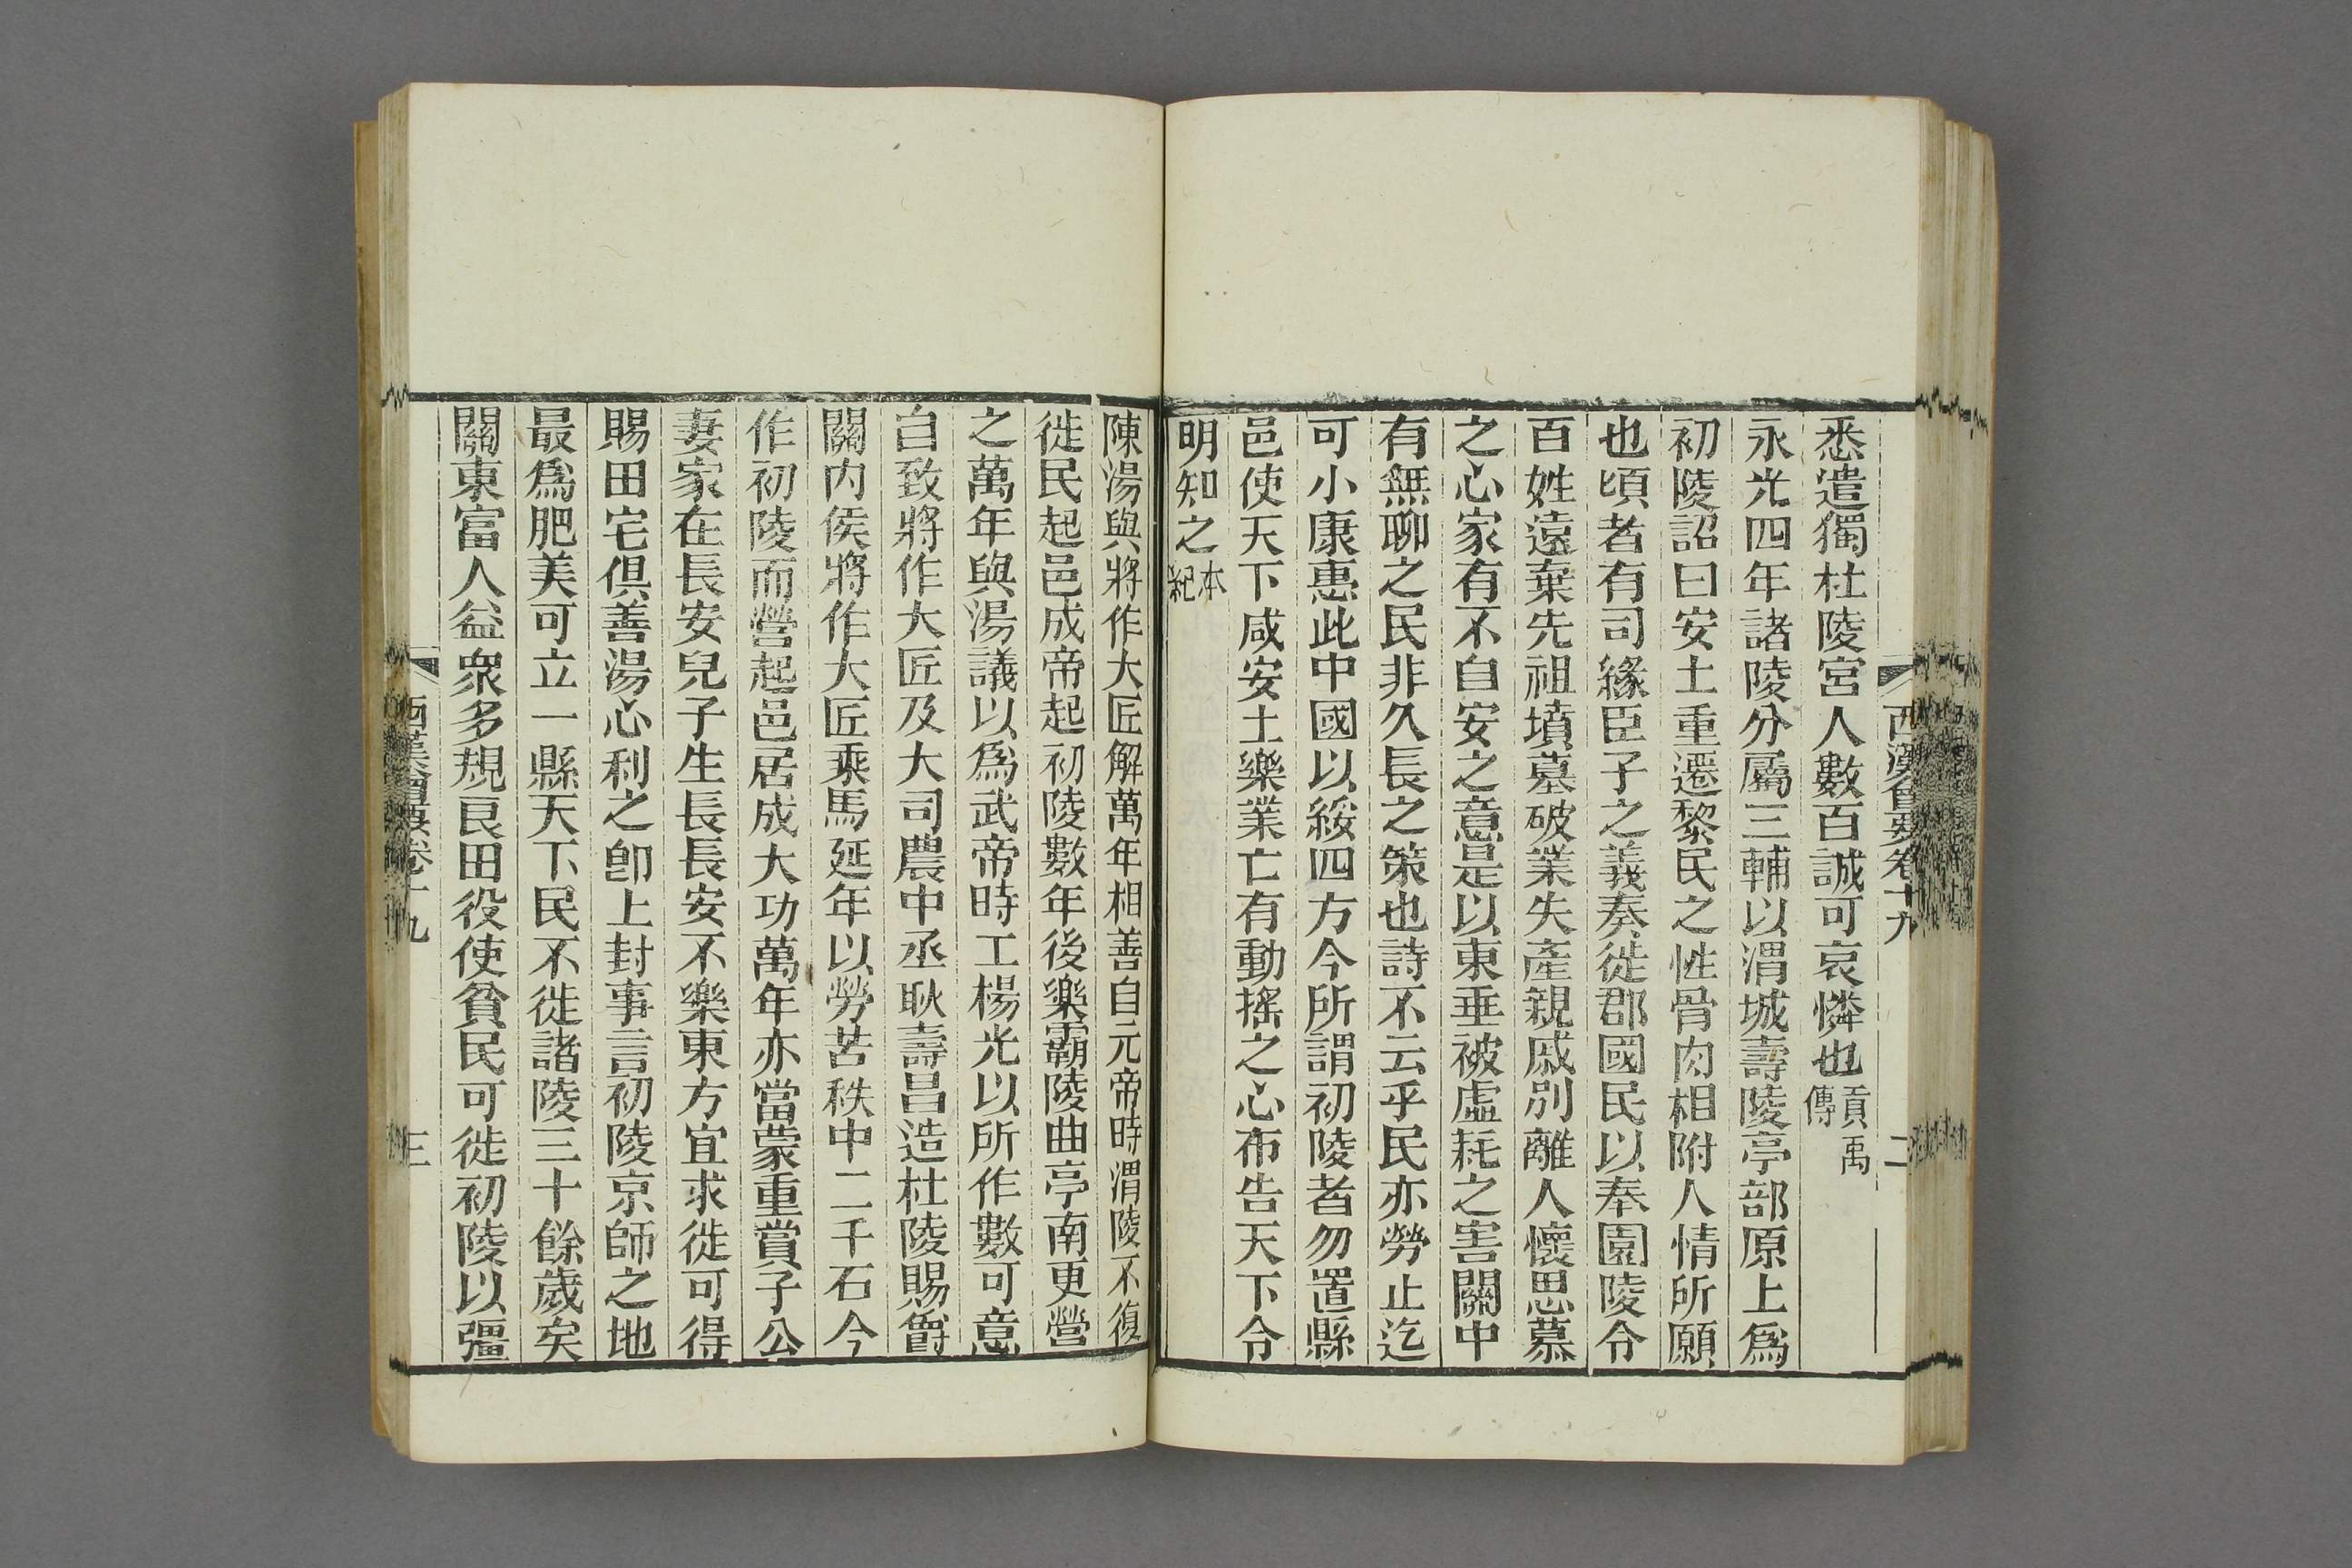 西漢會要卷十九
二
悉遣獨杜陵宮人數百誠可哀憐也貢禹傳
永光四年諸陵分屬三輔以渭城壽陵亭部原上爲
初陵詔曰安土重遷黎民之性骨肉相附人情所願
也頃者有司緣臣子之義奏徙郡國民以奉園陵令
百姓遠棄先祖墳墓破業失產親戚別離人懷思慕
之心家有不自安之意是以東垂被虛耗之害關中
有無聊之民非久長之策也詩不云乎民亦勞止迄
可小康惠此中國以綏四方今所謂初陵者勿置縣
邑使天下咸安土樂業亡有動搖之心布告天下令
明知之本紀
陳湯與將作大匠解萬年相善自元帝時渭陵不復
徙民起邑成帝起初陵數年後樂霸陵曲亭南更營
之萬年與湯議以爲武帝時工楊光以所作數可意
自致將作大匠及大司農中丞耿壽昌造杜陵賜爵
關內侯將作大匠乘馬延年以勞苦秩中二千石今
作初陵而營起邑居成大功萬年亦當蒙重賞子公
妻家在長安兒子生長長安不樂東方宜求徙可得
賜田宅俱善湯心利之卽上封事言初陵京師之地
最爲肥美可立一縣天下民不徙諸陵三十餘歲矣
關東富人益衆多規良田役使貧民可徙初陵以彊
西漢會要卷十九
三